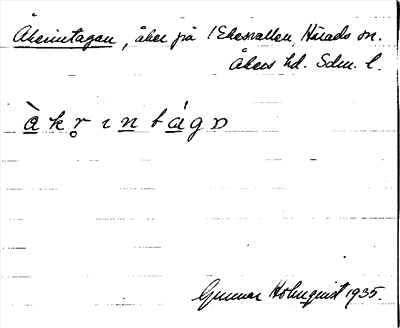 Åkerintagan, åker på Ekesvallen, Härads sn.
Åkers hd. Sdm. l.
àkr̥ıntágɷ
Gunnar Holmquist 1935.